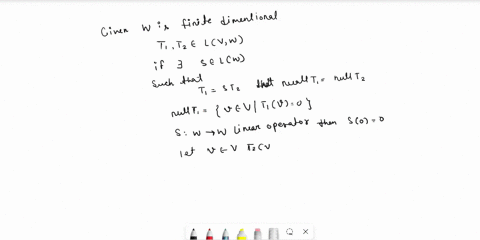 Given W is finite dimentional
T₁, T₂ ∈ L(V,W)
if ∃ S ∈ L(W)
such that
T₁ = ST₂ that null T₁ = null T₂
null T₁ = { v ∈ V | T₁(v) = 0 }
S: W → W linear operator then S(0) = 0
let v ∈ V T₂(v